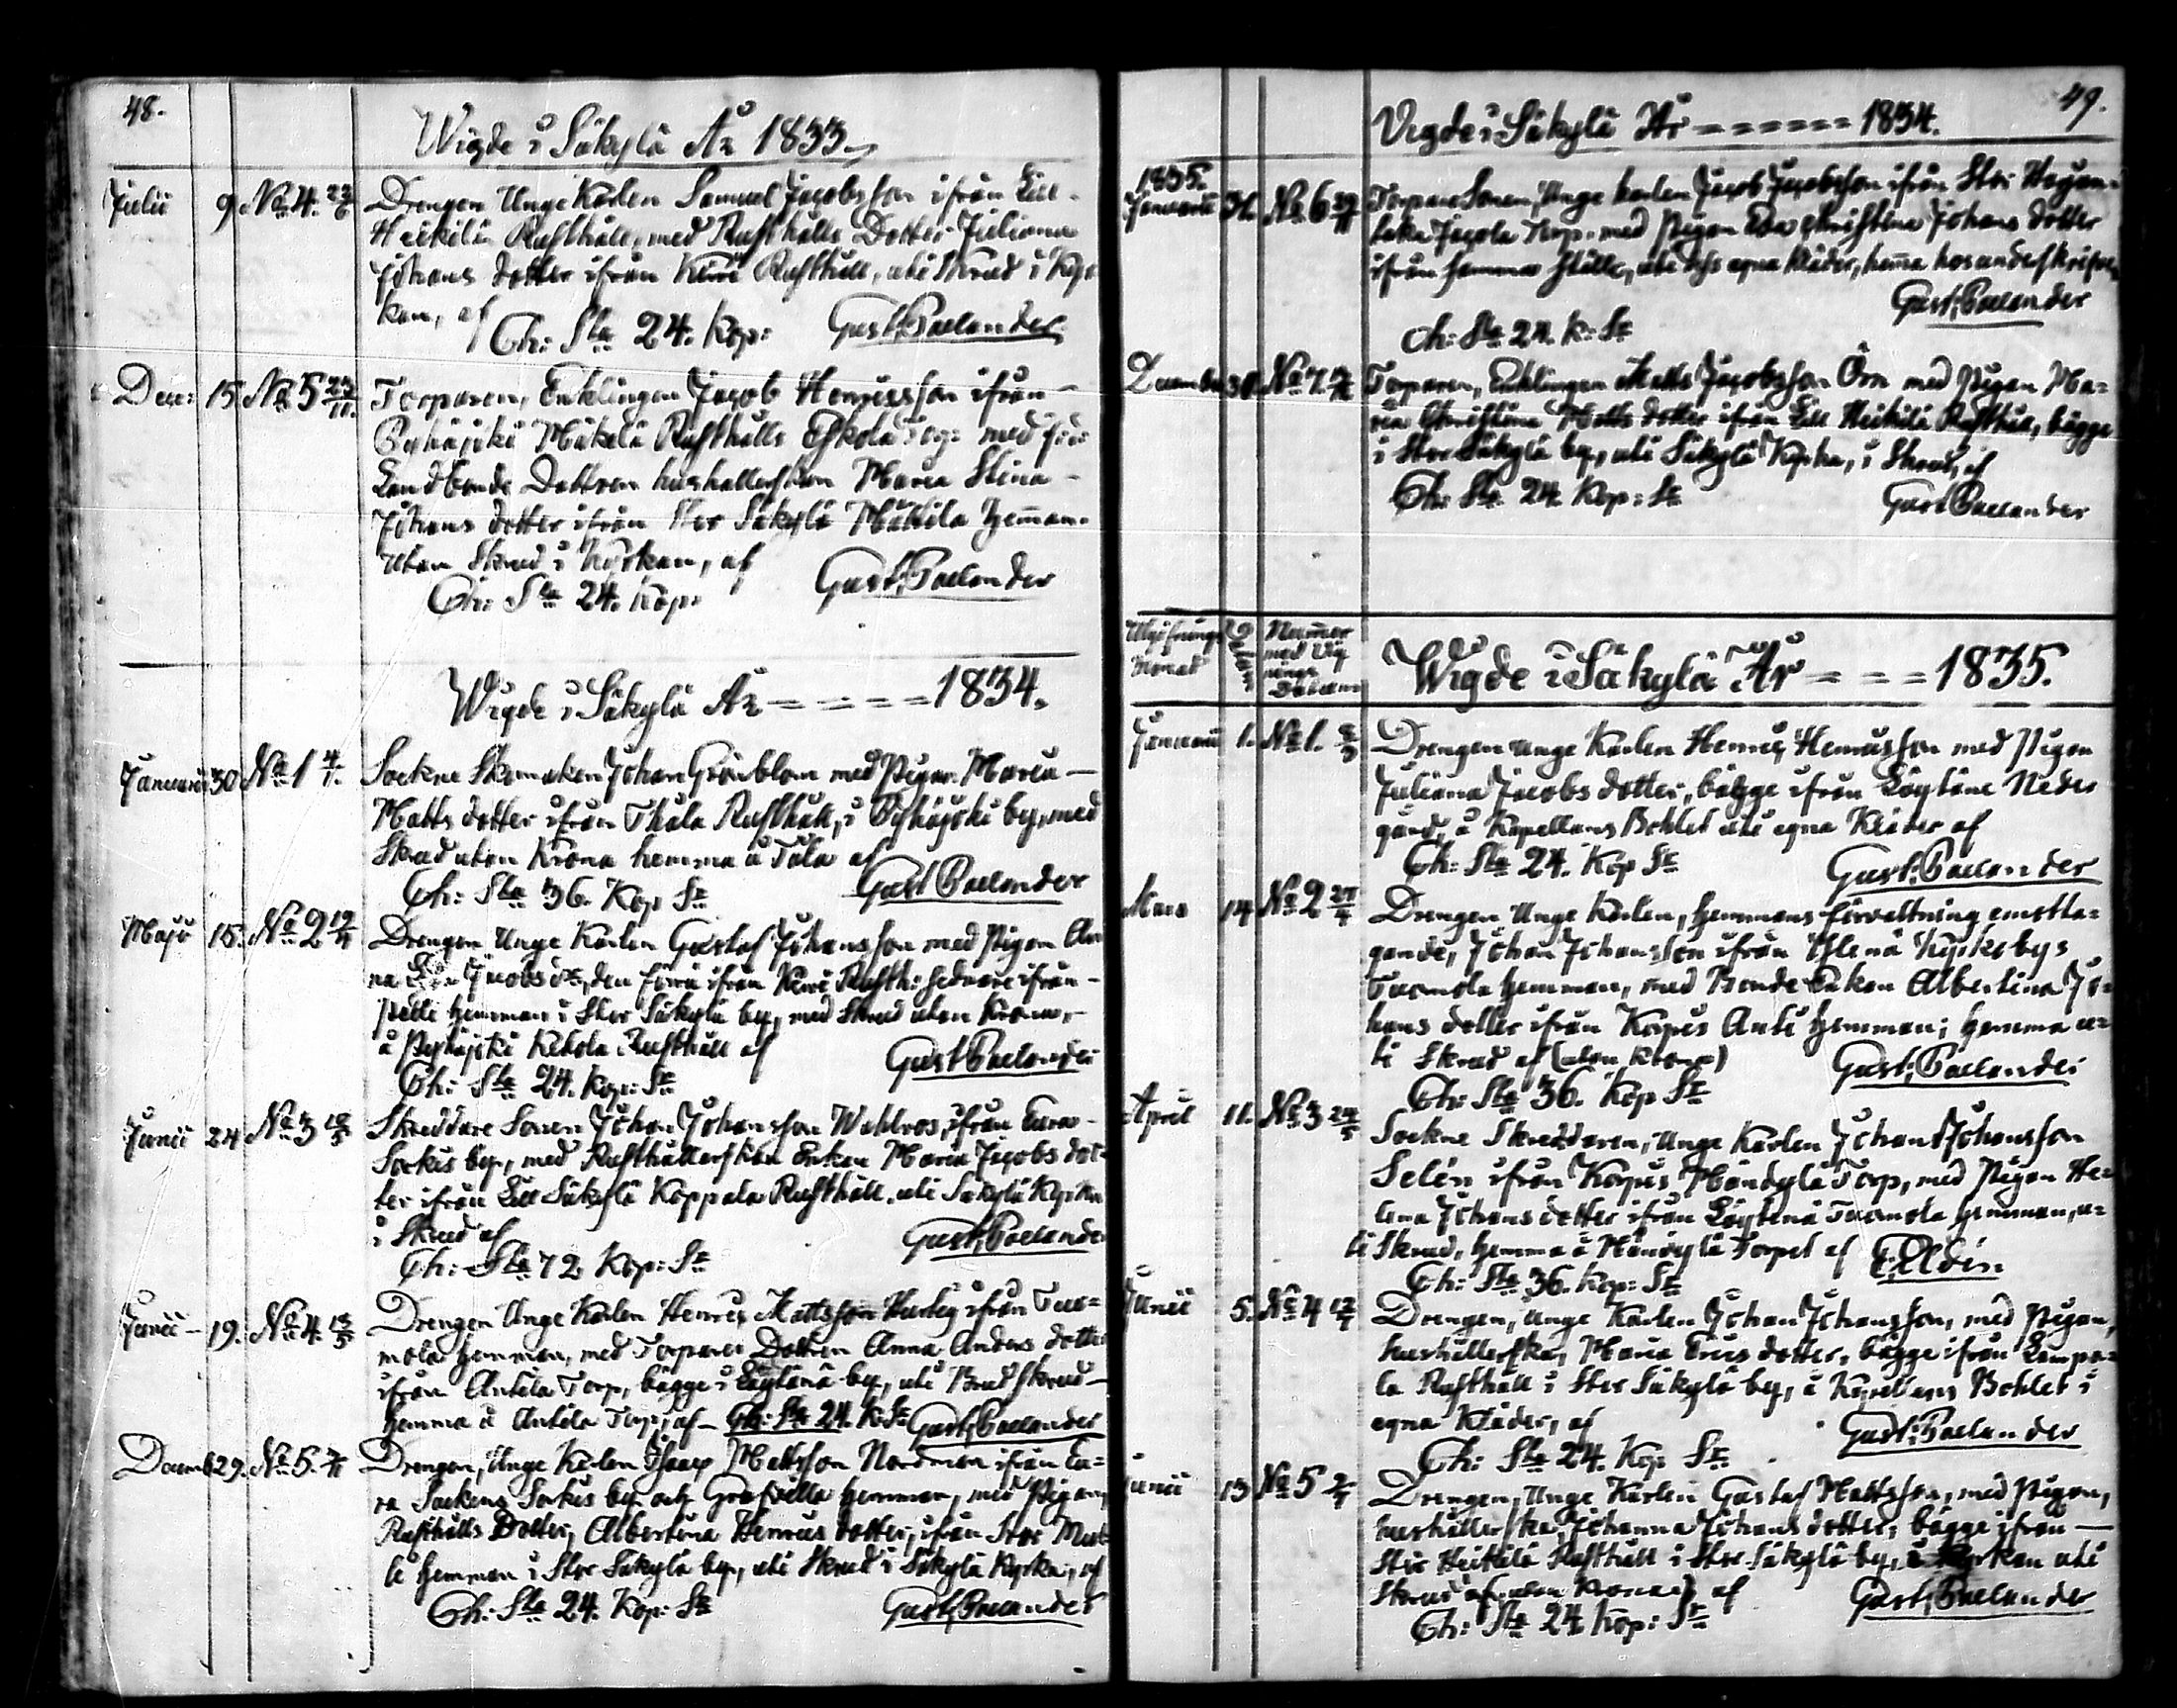 48.
Wigde i Säkylä År 1833.
Julii 9. No 4. 22/6 Drengen Unge Karlen Samuel Jacobsson ifrån Lill
Heikilä Rusthåll, med Rusthålls Dotter Juliana
Johans dotter ifrån Kärri Rusthåll, uti Skrud i Kyr
kan, af Gust: Paelander
Ch: Sta 24. Kop:
Dece: 15. No 5 23/11. Torparen, Enklingen Jacob Henricsson ifrån
Pyhäjoki Mäkelä Rusthålls Eskola Torp med förr
Landbonde Dottren hushållerskan Maria Stina
Johans dotter ifrån Stor Säkylä Mattila hemman.
utan Skrud i Kyrkan, af Gust: Paelander
Ch: Sta 24. Kop:
Wigde i Säkylä År = = = = = 1834.
Januarii 30 No 1 4/1. Sockne Skomakarn Johan Grönblom med Pigan Maria
Matts dotter ifrån Thala Rusthåll, i Pyhäjoki by, med
Skrud utan Krona hemma å Tala af
Ch: Sta 36. Kop Sr Gust Paelander
Maji 15. No 2 19/4 Drengen Unge Karlen Gustaf Johansson med Pigan An
na Jacobs dr, den förra ifrån Kärri Rusth: sednare ifrån
Pelle hemman i Stor Säkylä by, med Skrud utan Krona,
å Pyhäjoki Kekola Rusthåll af Gust Paelander
Ch: Sta 24. Kop: Sr
Junii 24 No 3 18/5 Skreddare Sonen Johan Johansson Wahlros, ifrån Eura
Sorkis by, med Rusthållerskan Enkan Maria Jacobs dot-
ter ifrån Lill Säkylä Koppala Rusthåll, uti Säkylä Kyrka
i Skrud af Gust: Paelander
Ch: Sta 72 Kop: Sr
Junii 19. No 4. 18/5 Drengen Unge Karlen Henric Mattsson ifrån Tuo=
mola hemman, med Torpare Dottren Anna Anders dotter
ifrån Antila Torp, bägge i Löytänä by, uti Brudskrud
hemma å Antila Torp, af Ch: Sta 24. K: Sr Gust: Paelander
Decemb 29. No 5. Drengen, Unge Karlen Isaac Mattsson Nordman ifrån Eu=
ra Sockens Sorkis by och hemman, med Pigan,
Rusthålls Dotter, Albertina Henrics dotter, ifrån Stor
hemman i Stor Säkylä by, uti Skrud i Säkylä Kyrka, af
Ch: Sta 24. Kop: Sr Gust: Paelander
49.
Wigde i Säkylä År = = = = = = 1834.
1835.
Januarii 31. No 6 Torpare Sonen, Unge karlen Jacob Jacobsson ifrån Stor
Jacola Torp. med Pigan Eva Christina Johans dotter
ifrån samma ställe, uti egna kläder, hemma hos
Gust: Paelander
Ch: Sta 24. K: Sr
December 30. No 7. Torparen, Enklingen Matts Jacobsson Örn med Pigan Ma=
ria Christina Matts dotter ifrån Lill Heikilä Rusthåll, bägge
i Stor Säkylä by, uti Säkylä Kyrka, i Skrud, af
Ch: Sta 24. Kop: Sr Gust Paelander
Utgifnings Nummer
Monat med Vig
nings
Datum
Wigde i Säkylä År = = = 1835.
Januarii 1. No 1. Drengen Unge Karlen Henric Henricsson med Pigan
Juliana Jacobs dotter, bägge ifrån Löytäne Neder
gård, å Kapellans Bohlet uti egna Kläder af
Ch: Sta 24. Kop Sr Gust: Paelander
Mars 14 No 2 Drengen Unge Karlen, hemmans förvaltning emotta=
gande, Johan Johansson ifrån Kyrkobys
Tuomola hemman, med Bonde Enkan Albertina Jo=
hans dotter ifrån Korpis Anti hemman; hemma u=
ti Skrud af (utan krona) Gust: Paelander
Ch: Sta 36. Kop Sr
April 11. No 3 24/5 Sockne Skreddaren, Unge Karlen Johan Johansson
Selén ifrån Korpis Mändylä Torp, med Pigan He=
lena Johans dotter ifrån Löytänä Tuomola hemman, u=
ti Skrud, hemma å Mändylä Torpet af
Ch: Sta 36. Kop: Sr
Junii 5. No 4 Drengen, Unge Karlen Johan Johansson, med Pigan,
hushållerska, Maria Erics dotter, bägge ifrån Lempa=
la Rusthåll i Stor Säkylä by, å Kapellans Bohlet i
egna Kläder, af Gust: Paelander
Ch: Sta 24. Kop: Sr
Junii 13 No 5 Drengen, Unge Karlen Gustaf Mattsson, med Pigan,
hushållerska, Johanna Johans dotter, bägge ifrån
Stor Heikilä Rusthåll i Stor Säkylä by, i Kyrkan uti
Skrud af utan Krona) af Gust: Paelander
Ch: Sta 24 Kop: Sr